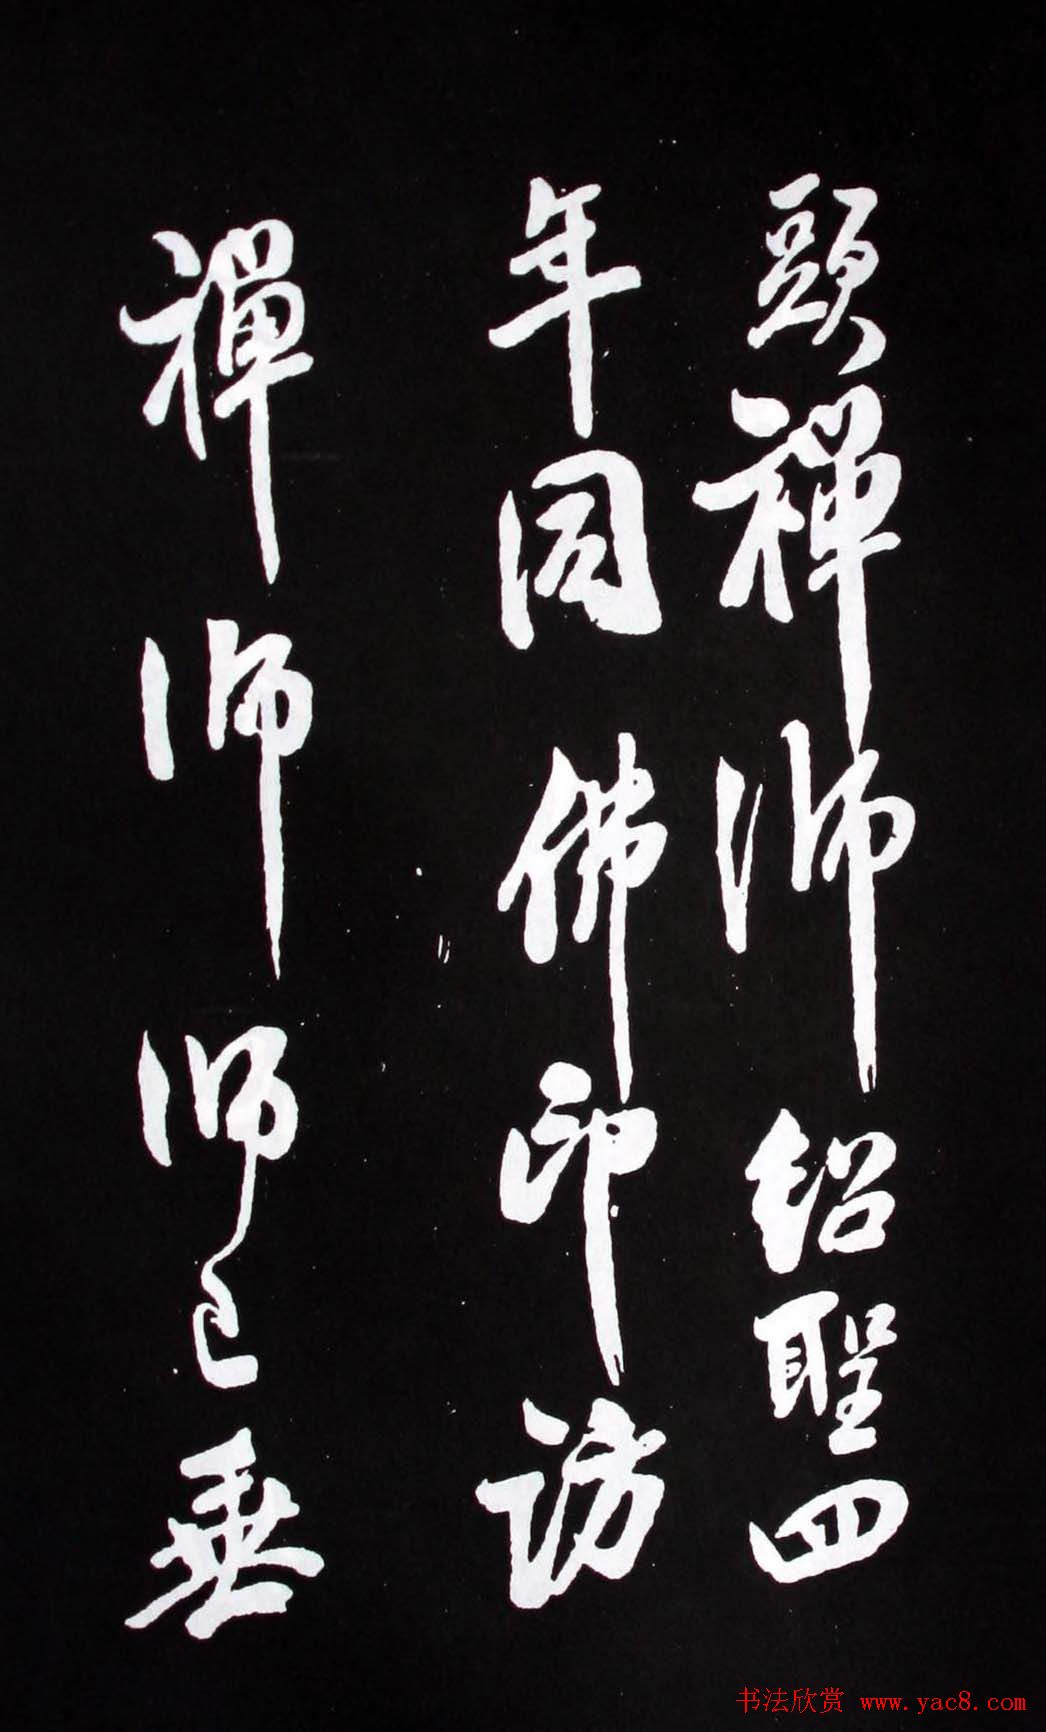 頭禪師紹聖四
年同佛印訪
禪師師已垂
书法欣赏 www.yac8.com